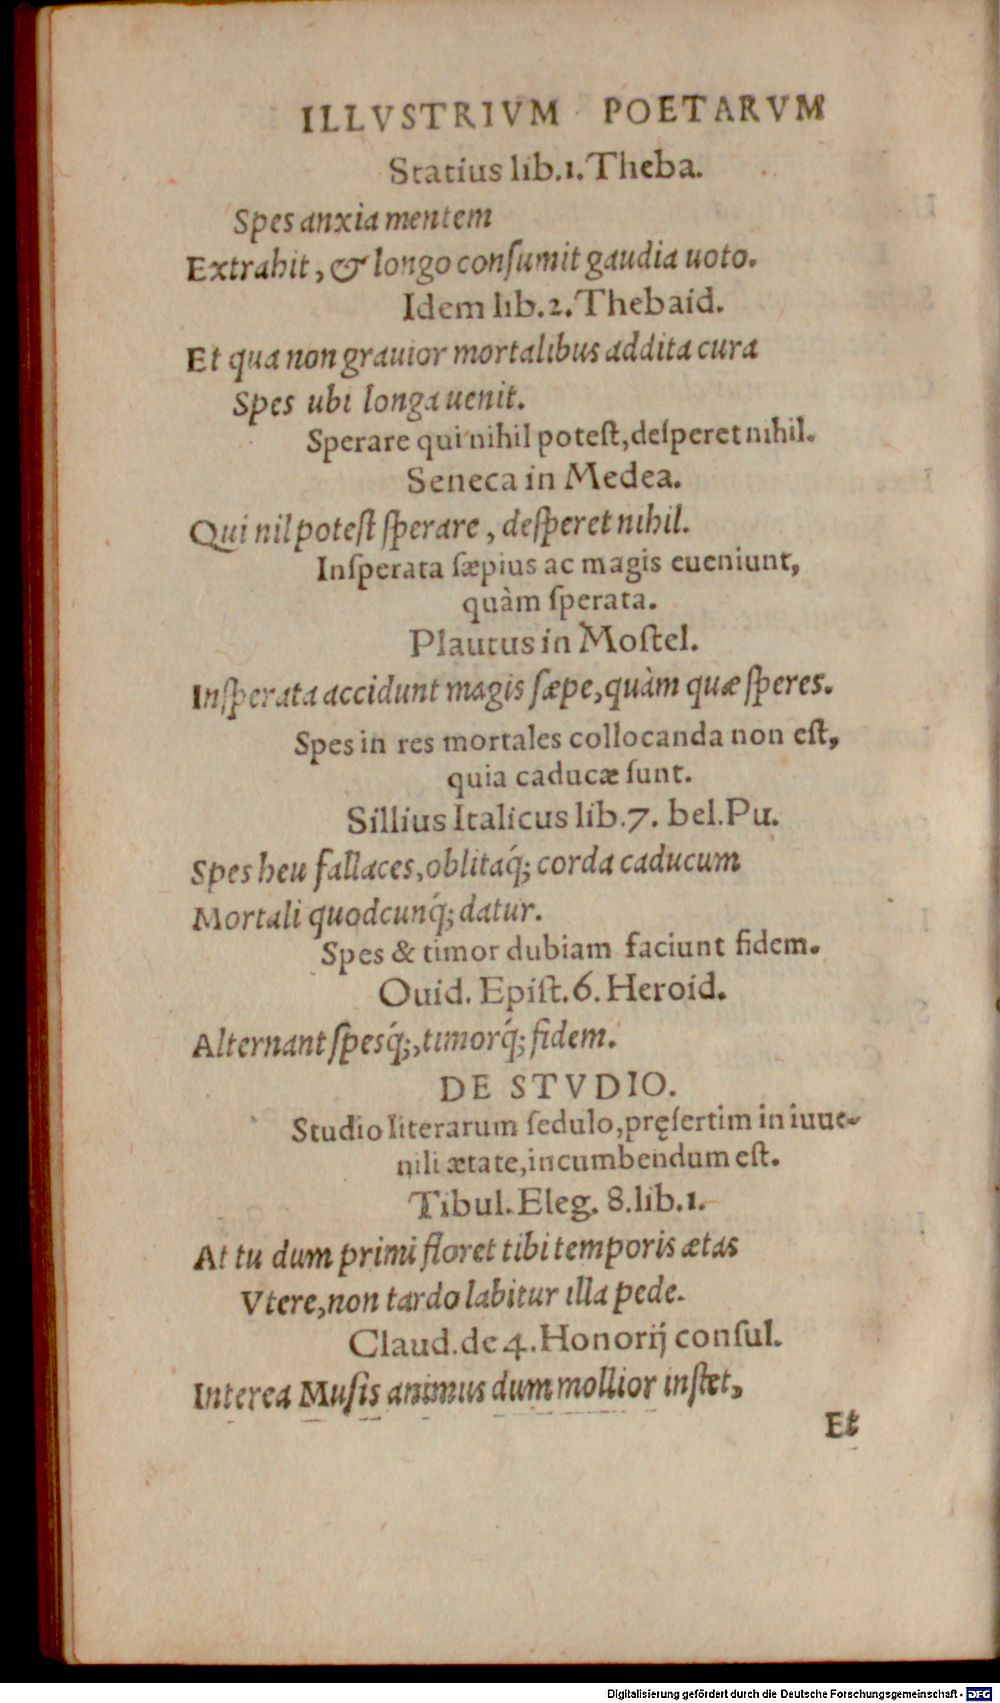 ILLVSTRIVM POETARVM
Statius lib.1.Theba.
Spes anxia mentem
Extrahit, & longo conſumit gaudia uoto.
Idem lib.2.Thebaid.
Et qua non grauior mortalibus addita cura
Spes ubi longa uenit.
Sperare qui nihil poteſt, deſperet nihil.
Seneca in Medea.
Qui nil poteſt ſperare, deſperet nihil.
Inſperata ſæpius ac magis eueniunt,
quàm ſperata.
Plautus in Moſtel.
Inſperata accidunt magis ſæpe, quàm quæ ſperes.
Spes in res mortales collocanda non eſt,
quia caducæ ſunt.
Sillius Italicus lib.7. bel.Pu.
Spes heu fallaces, oblitaq́; corda caducum
Mortali quodcunq́; datur.
Spes & timor dubiam faciunt fidem.
Ouid. Epiſt.6. Heroid.
Alternant ſpesq́;, timorq́; fidem.
DE STVDIO.
Studio literarum ſedulo, pręſertim in iuue-
nili ætate, incumbendum eſt.
Tibul. Eleg. 8.lib.1.
At tu dum primi floret tibi temporis ætas
Vtere, non tardo labitur illa pede.
Claud.de 4.Honorij conſul.
Interea Muſis animus dum mollior inſtet,
Et
Digitalisierung gefördert durch die Deutsche Forschungsgemeinschaft - DFG